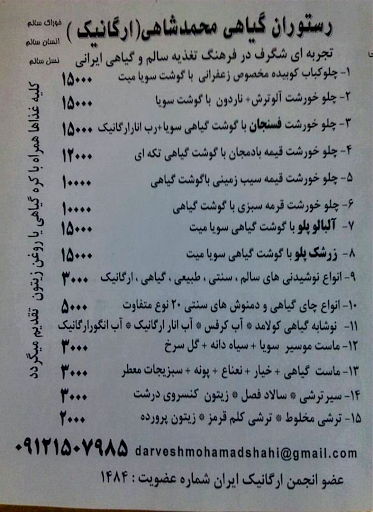 رستوران گیاهی محمدشاهی (ارگانیک)
خوراک سالم
انسان سالم
نسل سالم
تجربه ای شگرف در فرهنگ تغذیه سالم و گیاهی ایرانی
۱- چلوکباب کوبیده مخصوص زعفرانی با گوشت سویا میت ۱۵۰۰۰
۲- چلو خورشت آلوترش + ناردون با گوشت سویا ۱۵۰۰۰
۳- چلو خورشت فسنجان با گوشت گیاهی سویا+رب انارارگانیک ۱۵۰۰۰
۴- چلو خورشت قیمه بادمجان با گوشت گیاهی تکه ای ۱۲۰۰۰
۵- چلو خورشت قیمه سیب زمینی باگوشت گیاهی ۱۰۰۰۰
۶- چلو خورشت قرمه سبزی با گوشت گیاهی ۱۰۰۰۰
۷- آلبالو پلو با گوشت گیاهی سویا میت ۱۵۰۰۰
۸- زرشک پلو با گوشت گیاهی سویا میت ۱۵۰۰۰
۹- انواع نوشیدنی های سالم ، سنتی ، طبیعی ، گیاهی ، ارگانیک ۳۰۰۰
۱۰- انواع چای گیاهی و دمنوش های سنتی ۲۰ نوع متفاوت ۵۰۰۰
۱۱- نوشابه گیاهی کولامد * آب کرفس * آب انار ارگانیک * آب انگورارگانیک
۱۲- ماست موسیر سویا + سیاه دانه + گل سرخ ۳۰۰۰
۱۳- ماست گیاهی + خیار + نعناع + پونه + سبزیجات معطر ۳۰۰۰
۱۴- سیرترشی * سالاد فصل * زیتون کنسروی درشت ۳۰۰۰
۱۵- ترشی مخلوط * ترشی کلم قرمز * زیتون پرورده ۲۰۰۰
کلیه غذاها همراه با کره گیاهی یا روغن زیتون تقدیم میگردد
darveshmohamadshahi@gmail.com ۰۹۱۲۱۵۰۷۹۸۵
عضو انجمن ارگانیک ایران شماره عضویت : ۱۴۸۴